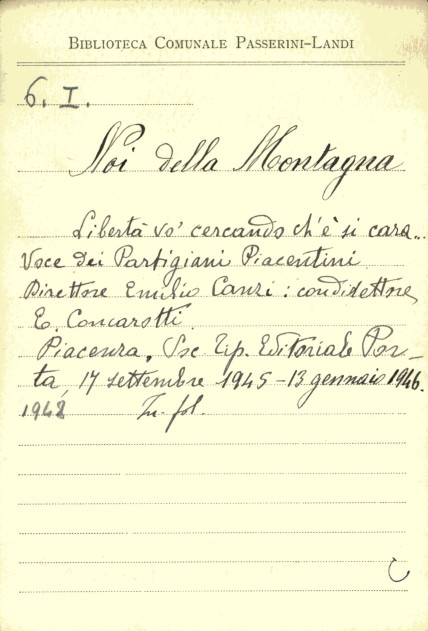 BIBLIOTECA COMUNALE PASSERINI-LANDI
6. I.
Noi della Montagna
Libertà vo' cercando ch'è sì cara...
Voce dei Partigiani Piacentini
Direttore Emilio Canzi: condirettore
E. Concarotti.
Piacenza, Soc. Tip. Editoriale Por-
ta, 17 settembre 1945 - 13 gennaio 1946.
In fol.